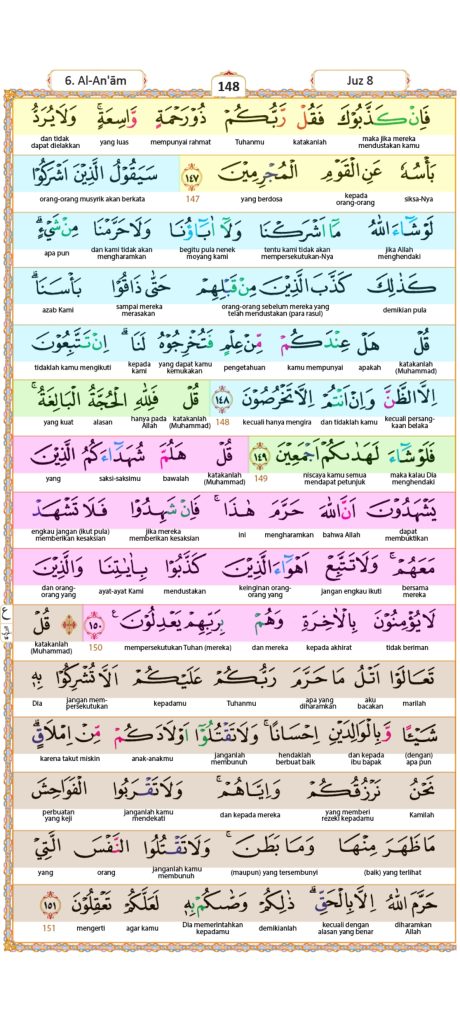 6. Al-An'ām
148
Juz 8
فَاِنْ كَذَّبُوْكَ فَقُلْ رَّبُّكُمْ ذُوْ رَحْمَةٍ وَّاسِعَةٍۚ وَلَا يُرَدُّ
maka jika mereka mendustakan kamu katakanlah Tuhanmu mempunyai rahmat yang luas dan tidak dapat dielakkan
بَأْسُهٗ عَنِ الْقَوْمِ الْمُجْرِمِيْنَ ١٤٧ سَيَقُوْلُ الَّذِيْنَ اَشْرَكُوْا
siksa-Nya kepada orang-orang yang berdosa 147 orang-orang musyrik akan berkata
لَوْ شَاۤءَ اللّٰهُ مَآ اَشْرَكْنَا وَلَآ اٰبَاۤؤُنَا وَلَا حَرَّمْنَا مِنْ شَيْءٍۗ
jika Allah menghendaki tentu kami tidak akan mempersekutukan-Nya begitu pula nenek moyang kami dan kami tidak akan mengharamkan apa pun
كَذٰلِكَ كَذَّبَ الَّذِيْنَ مِنْ قَبْلِهِمْ حَتّٰى ذَاقُوْا بَأْسَنَاۗ
demikian pula orang-orang sebelum mereka telah mendustakan (para rasul) sampai mereka merasakan azab Kami
قُلْ هَلْ عِنْدَكُمْ مِّنْ عِلْمٍ فَتُخْرِجُوْهُ لَنَاۗ اِنْ تَتَّبِعُوْنَ
katakanlah (Muhammad) apakah kamu mempunyai pengetahuan yang dapat kamu kemukakan kepada kami tidaklah kamu mengikuti
اِلَّا الظَّنَّ وَاِنْ اَنْتُمْ اِلَّا تَخْرُصُوْنَ ١٤٨ قُلْ فَلِلّٰهِ الْحُجَّةُ الْبَالِغَةُۚ
kecuali persang-kaan belaka dan tidaklah kamu kecuali hanya mengira 148 katakanlah (Muhammad) hanya pada Allah alasan yang kuat
فَلَوْ شَاۤءَ لَهَدٰىكُمْ اَجْمَعِيْنَ ١٤٩ قُلْ هَلُمَّ شُهَدَاۤءَكُمُ الَّذِيْنَ
maka kalau Dia menghendaki niscaya kamu semua mendapat petunjuk 149 katakanlah (Muhammad) bawalah saksi-saksimu yang
يَشْهَدُوْنَ اَنَّ اللّٰهَ حَرَّمَ هٰذَاۚ فَاِنْ شَهِدُوْا فَلَا تَشْهَدْ
dapat membuktikan bahwa Allah mengharamkan ini jika mereka memberikan kesaksian engkau jangan (ikut pula) memberikan kesaksian
مَعَهُمْۚ وَلَا تَتَّبِعْ اَهْوَاۤءَ الَّذِيْنَ كَذَّبُوْا بِاٰيٰتِنَا وَالَّذِيْنَ
bersama mereka jangan engkau ikuti keinginan orang-orang yang mendustakan ayat-ayat Kami dan orang-orang yang
لَا يُؤْمِنُوْنَ بِالْاٰخِرَةِ وَهُمْ بِرَبِّهِمْ يَعْدِلُوْنَ ١٥٠ ۞ قُلْ
tidak beriman kepada akhirat dan mereka mempersekutukan Tuhan (mereka) 150 katakanlah (Muhammad)
ع
تَعَالَوْا اَتْلُ مَا حَرَّمَ رَبُّكُمْ عَلَيْكُمْ اَلَّا تُشْرِكُوْا بِهٖ
marilah aku bacakan apa yang diharamkan Tuhanmu kepadamu jangan mem-persekutukan Dia
شَيْـًٔا وَّبِالْوَالِدَيْنِ اِحْسَانًاۚ وَلَا تَقْتُلُوْٓا اَوْلَادَكُمْ مِّنْ اِمْلَاقٍۗ
(dengan) apa pun dan kepada ibu bapak hendaklah berbuat baik janganlah membunuh anak-anakmu karena takut miskin
نَحْنُ نَرْزُقُكُمْ وَاِيَّاهُمْۚ وَلَا تَقْرَبُوا الْفَوَاحِشَ
Kamilah yang memberi rezeki kepadamu dan kepada mereka janganlah kamu mendekati perbuatan yang keji
مَا ظَهَرَ مِنْهَا وَمَا بَطَنَۚ وَلَا تَقْتُلُوا النَّفْسَ الَّتِيْ
(baik) yang terlihat (maupun) yang tersembunyi janganlah kamu membunuh orang yang
حَرَّمَ اللّٰهُ اِلَّا بِالْحَقِّۗ ذٰلِكُمْ وَصّٰىكُمْ بِهٖ لَعَلَّكُمْ تَعْقِلُوْنَ ١٥١
diharamkan Allah kecuali dengan alasan yang benar demikianlah Dia memerintahkan kepadamu agar kamu mengerti 151